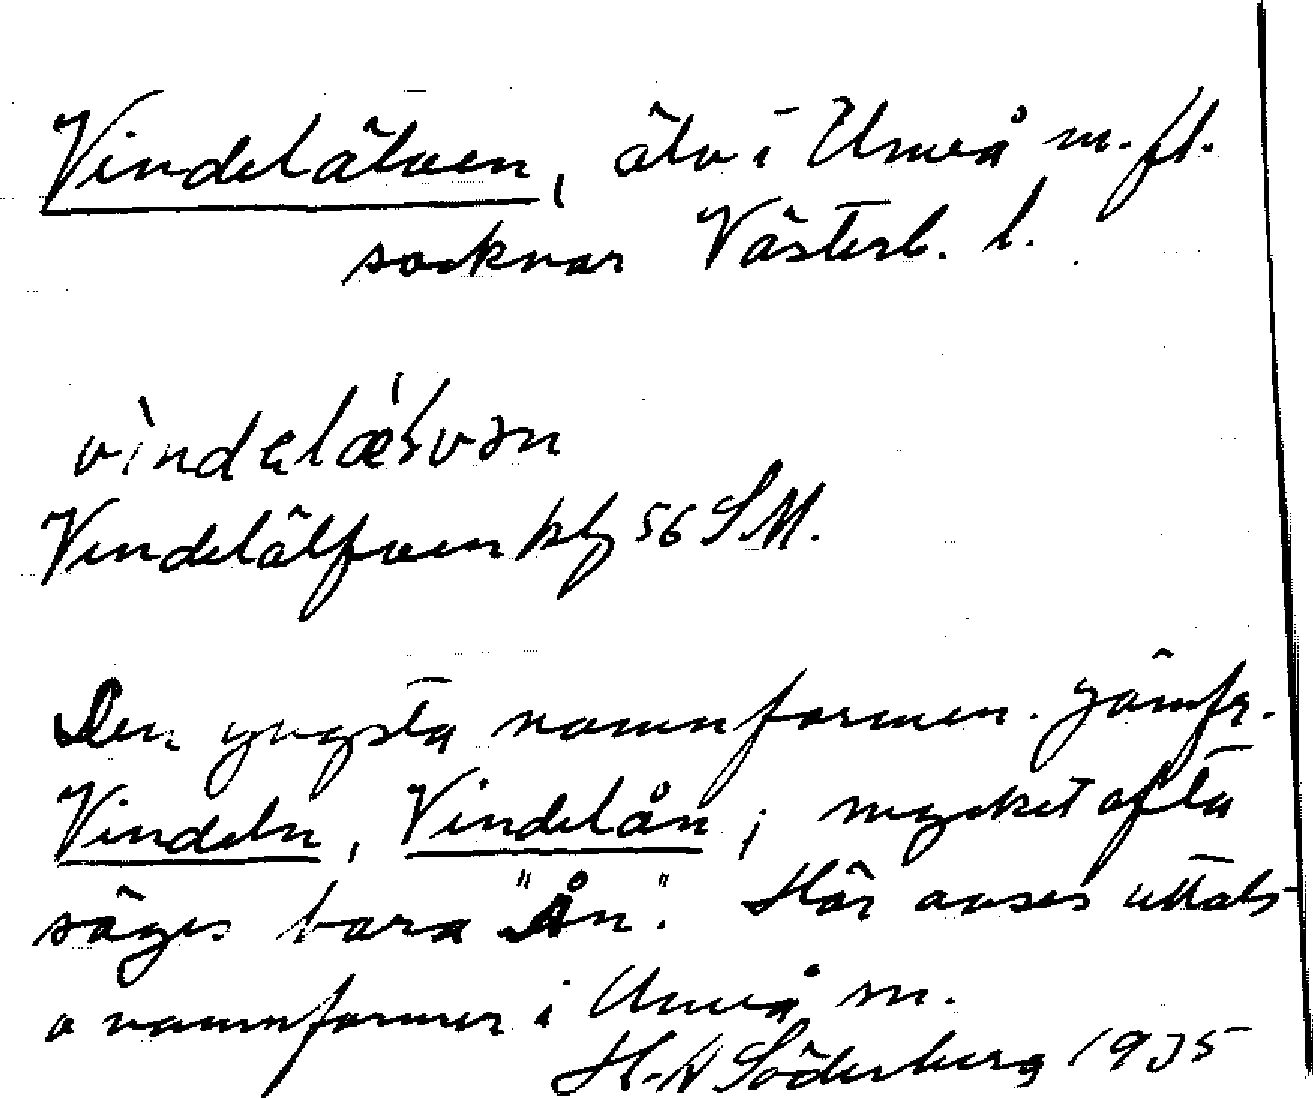 Vindelälven, älv i Umeå m. fl.
socknar Västerb. l.
vìndelǽlvən
Vindelälfven kbl 56 SM.
Den yngsta namnformen. Jämfr.
Vindeln, Vindelån; mycket ofta
säges bara "Ån". Här avses uttals-
o namnformer i Umeå sn.
H. Söderberg 1935